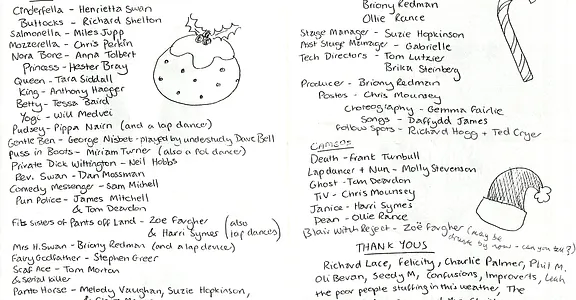 Cinderfella - Henrietta Swan
Buttocks - Richard Shelton
Salmonella - Miles Jupp
Mozzerella - Chris Perkin
Nora Bone - Anna Tolbert
Princess - Hester Bray
Queen - Tara Siddall
King - Anthony Hagger
Betty - Tessa Baird
Yogi - Will Medvei
Pudsey - Pippa Nairn (and a lap dancer)
Gentle Ben - George Nisbet - played by understudy Dave Bell
Puss in Boots - Miriam Turner (also a Pot dancer)
Private Dick Wittington - Neil Hobbs
Rev. Swan - Dan Mossman
Comedy Messenger - Sam Michell
Pun Police - James Mitchell
& Tom Deardon
Fits Sisters of Pants off Land - Zoe Fargher (also
& Harri Symes lap dancers)
Mrs H. Swan - Briony Redman (and a lap dancer)
Fairy Godfather - Stephen Greer
Scaf Ace - Tom Morton
& Serial killer
Panto Horse - Melody Vaughan, Suzie Hopkinson,
Briony Redman
Ollie Rance
Stage Manager - Suzie Hopkinson
Asst Stage Manager - Gabrielle
Tech Directors - Tom Lutzier
Brika Steinberg
Producer - Briony Redman
Poster - Chris Mounsey
Choreography - Gemma Fairlie
Songs - Daffydd James
Follow Spots - Richard Hogg + Ted Cryer
Cameos
Death - Frank Turnbull
Lapdancer + Nun - Molly Stevenson
Ghost - Tom Deardon
TiV - Chris Mounsey
Janice - Harri Symes
Dean - Ollie Rance
Blair Witch Reject - Zoë Fargher (may be
drunk by now - can you tell?)
THANK YOUS
Richard Lace, Felicity, Charlie Palmer, Phil M.
Oli Bevan, Seedy M, Confusions, Improverts, Leah
the poor people stuffing this weather, The